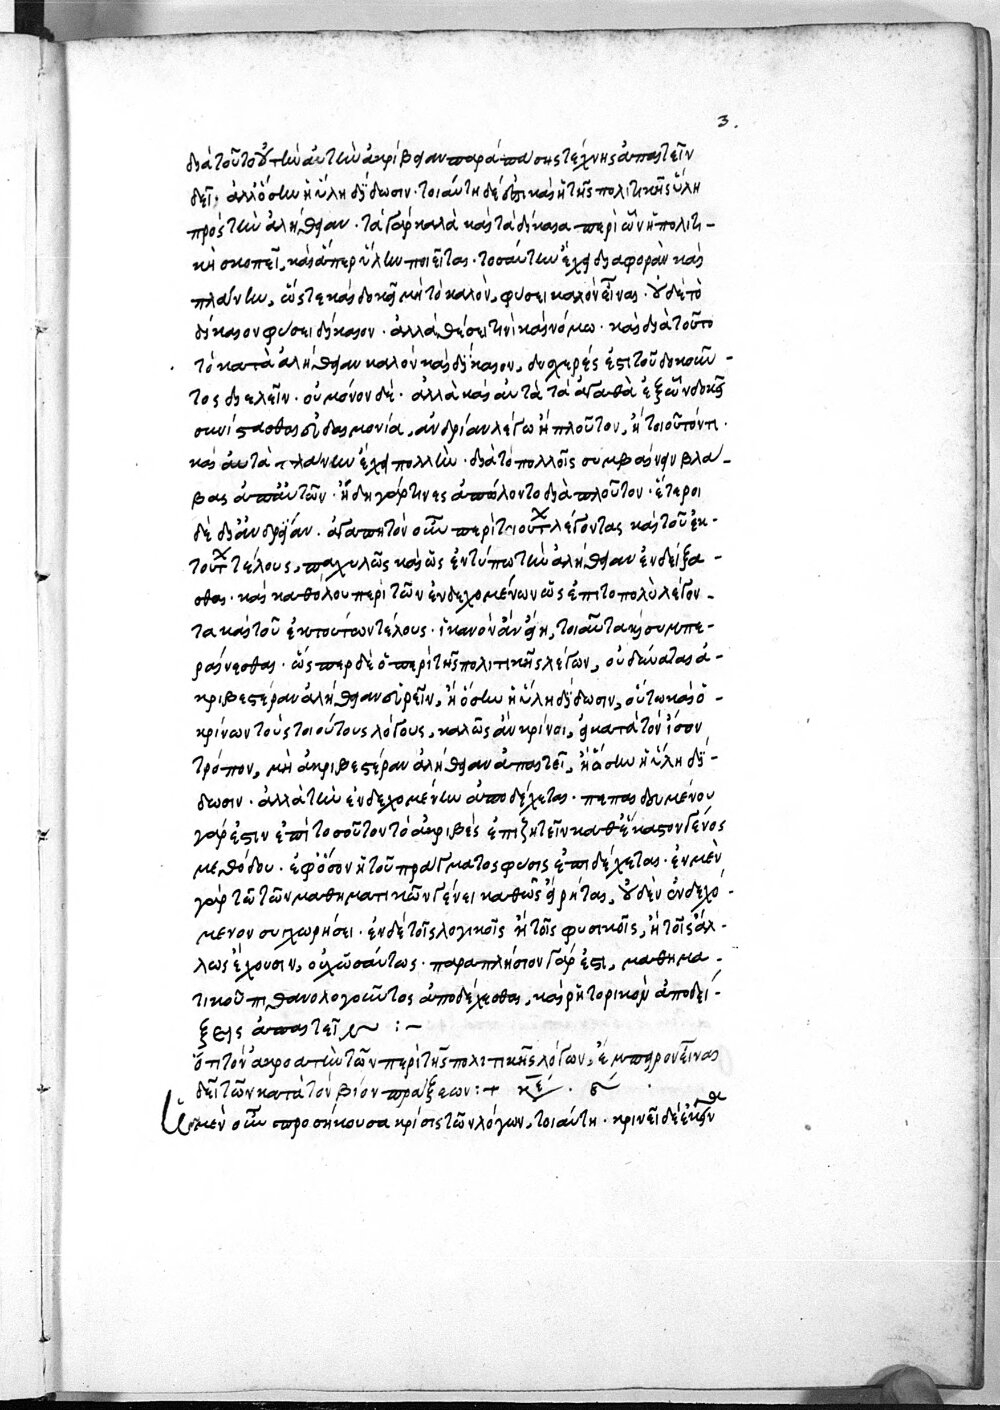 3.
διὰ τοῦτο οὐ τὴν αὐτὴν ἀκρίβειαν παρὰ πάσης τέχνης ἀπαιτεῖν
δεῖ, ἀλλ' ὅσην ἡ ὕλη δίδωσιν· τοιαύτη δέ ἐστι καὶ ἡ τῆς πολιτικῆς ὕλη
πρὸς τὴν ἀλήθειαν· τὰ γὰρ καλὰ καὶ τὰ δίκαια περὶ ὧν ἡ πολιτι-
κὴ σκοπεῖ, καὶ ἅπερ ὕλην ποιεῖται· τοσαύτην ἔχει διαφορὰν καὶ
πλάνην, ὥστε καὶ δοκεῖ μὴ τὸ καλὸν, φύσει καλὸν εἶναι· οὐδὲ τὸ
δίκαιον φύσει δίκαιον· ἀλλὰ θέσει τινὶ καὶ νόμῳ· καὶ διὰ τοῦτο
τὸ κατὰ ἀλήθειαν καλὸν καὶ δίκαιον, δυσχερές ἐστι τοῦ δοκοῦν-
τος διελεῖν· οὐ μόνον δέ· ἀλλὰ καὶ αὐτὰ τὰ ἀγαθὰ ἐξ ὧν δοκεῖ
συνίστασθαι εὐδαιμονία, ἀνδρίαν λέγω ἢ πλοῦτον, ἢ τοιοῦτόν τι·
καὶ αὐτὰ πλάνην ἔχει πολλὴν· διὰ τὸ πολλοῖς συμβαίνειν βλά-
βας ἀπ' αὐτῶν· ἤδη γάρ τινες ἀπώλοντο διὰ πλοῦτον· ἕτεροι
δὲ δι' ἀνδρίαν· ἀγαπητὸν οὖν περὶ τοιούτ λέγοντας καὶ τοῦ ἐκ-
τούτ τέλους, παχυλῶς καὶ ὡς ἐν τύπῳ τὴν ἀλήθειαν ἐνδείξα-
σθαι· καὶ καθόλου περὶ τῶν ἐνδεχομένων ὡς ἐπὶ τὸ πολὺ λέγον-
τα καὶ τοῦ ἐκ τούτων τέλους· ἱκανὸν ἂν εἴη, τοιαῦτα καὶ συμπε-
ραίνεσθαι· ὥσπερ δὲ ὁ περὶ τῆς πολιτικῆς λέγων, οὐ δύναται ἀ-
κριβεστέραν ἀλήθειαν εὑρεῖν, ἢ ὅσην ἡ ὕλη δίδωσιν, οὕτω καὶ ὁ
κρίνων τοὺς τοιούτους λόγους, καλῶς ἂν κρίνοι, εἰ κατὰ τὸν ἴσον
τρόπον, μὴ ἀκριβεστέραν ἀλήθειαν ἀπαιτεῖ, ἢ ὅσην ἡ ὕλη δί-
δωσιν· ἀλλὰ τὴν ἐνδεχομένην ἀποδέχεται· πεπαιδευμένου
γάρ ἐστιν ἐπὶ τοσοῦτον τὸ ἀκριβὲς ἐπιζητεῖν καθ' ἕκαστον γένος
μεθόδου· ἐφ' ὅσον ἡ τοῦ πράγματος φύσις ἐπιδέχεται· ἐν μὲν
γὰρ τῷ τῶν μαθηματικῶν γένει καθὼς εἴρηται, οὐδὲν ἐνδεχό-
μενον συγχωρήσει· ἐν δὲ τοῖς λογικοῖς ἢ τοῖς φυσικοῖς, ἢ τοῖς ἄλ-
λως ἔχουσιν, οὐχ ὡσαύτως· παραπλήσιον γάρ ἐστι, μαθημα-
τικοῦ πιθανολογοῦντος ἀποδέχεσθαι, καὶ ῥητορικὸν ἀποδεί-
ξεις ἀπαιτεῖν :~
ὅτι τὸν ἀκροατὴν τῶν περὶ τῆς πολιτικῆς λόγων, ἔμπειρον εἶναι
δεῖ τῶν κατὰ τὸν βίον πράξεων :+ κε.
ἡ μὲν οὖν προσήκουσα κρίσις τῶν λόγων, τοιαύτη· κρινεῖ δὲ